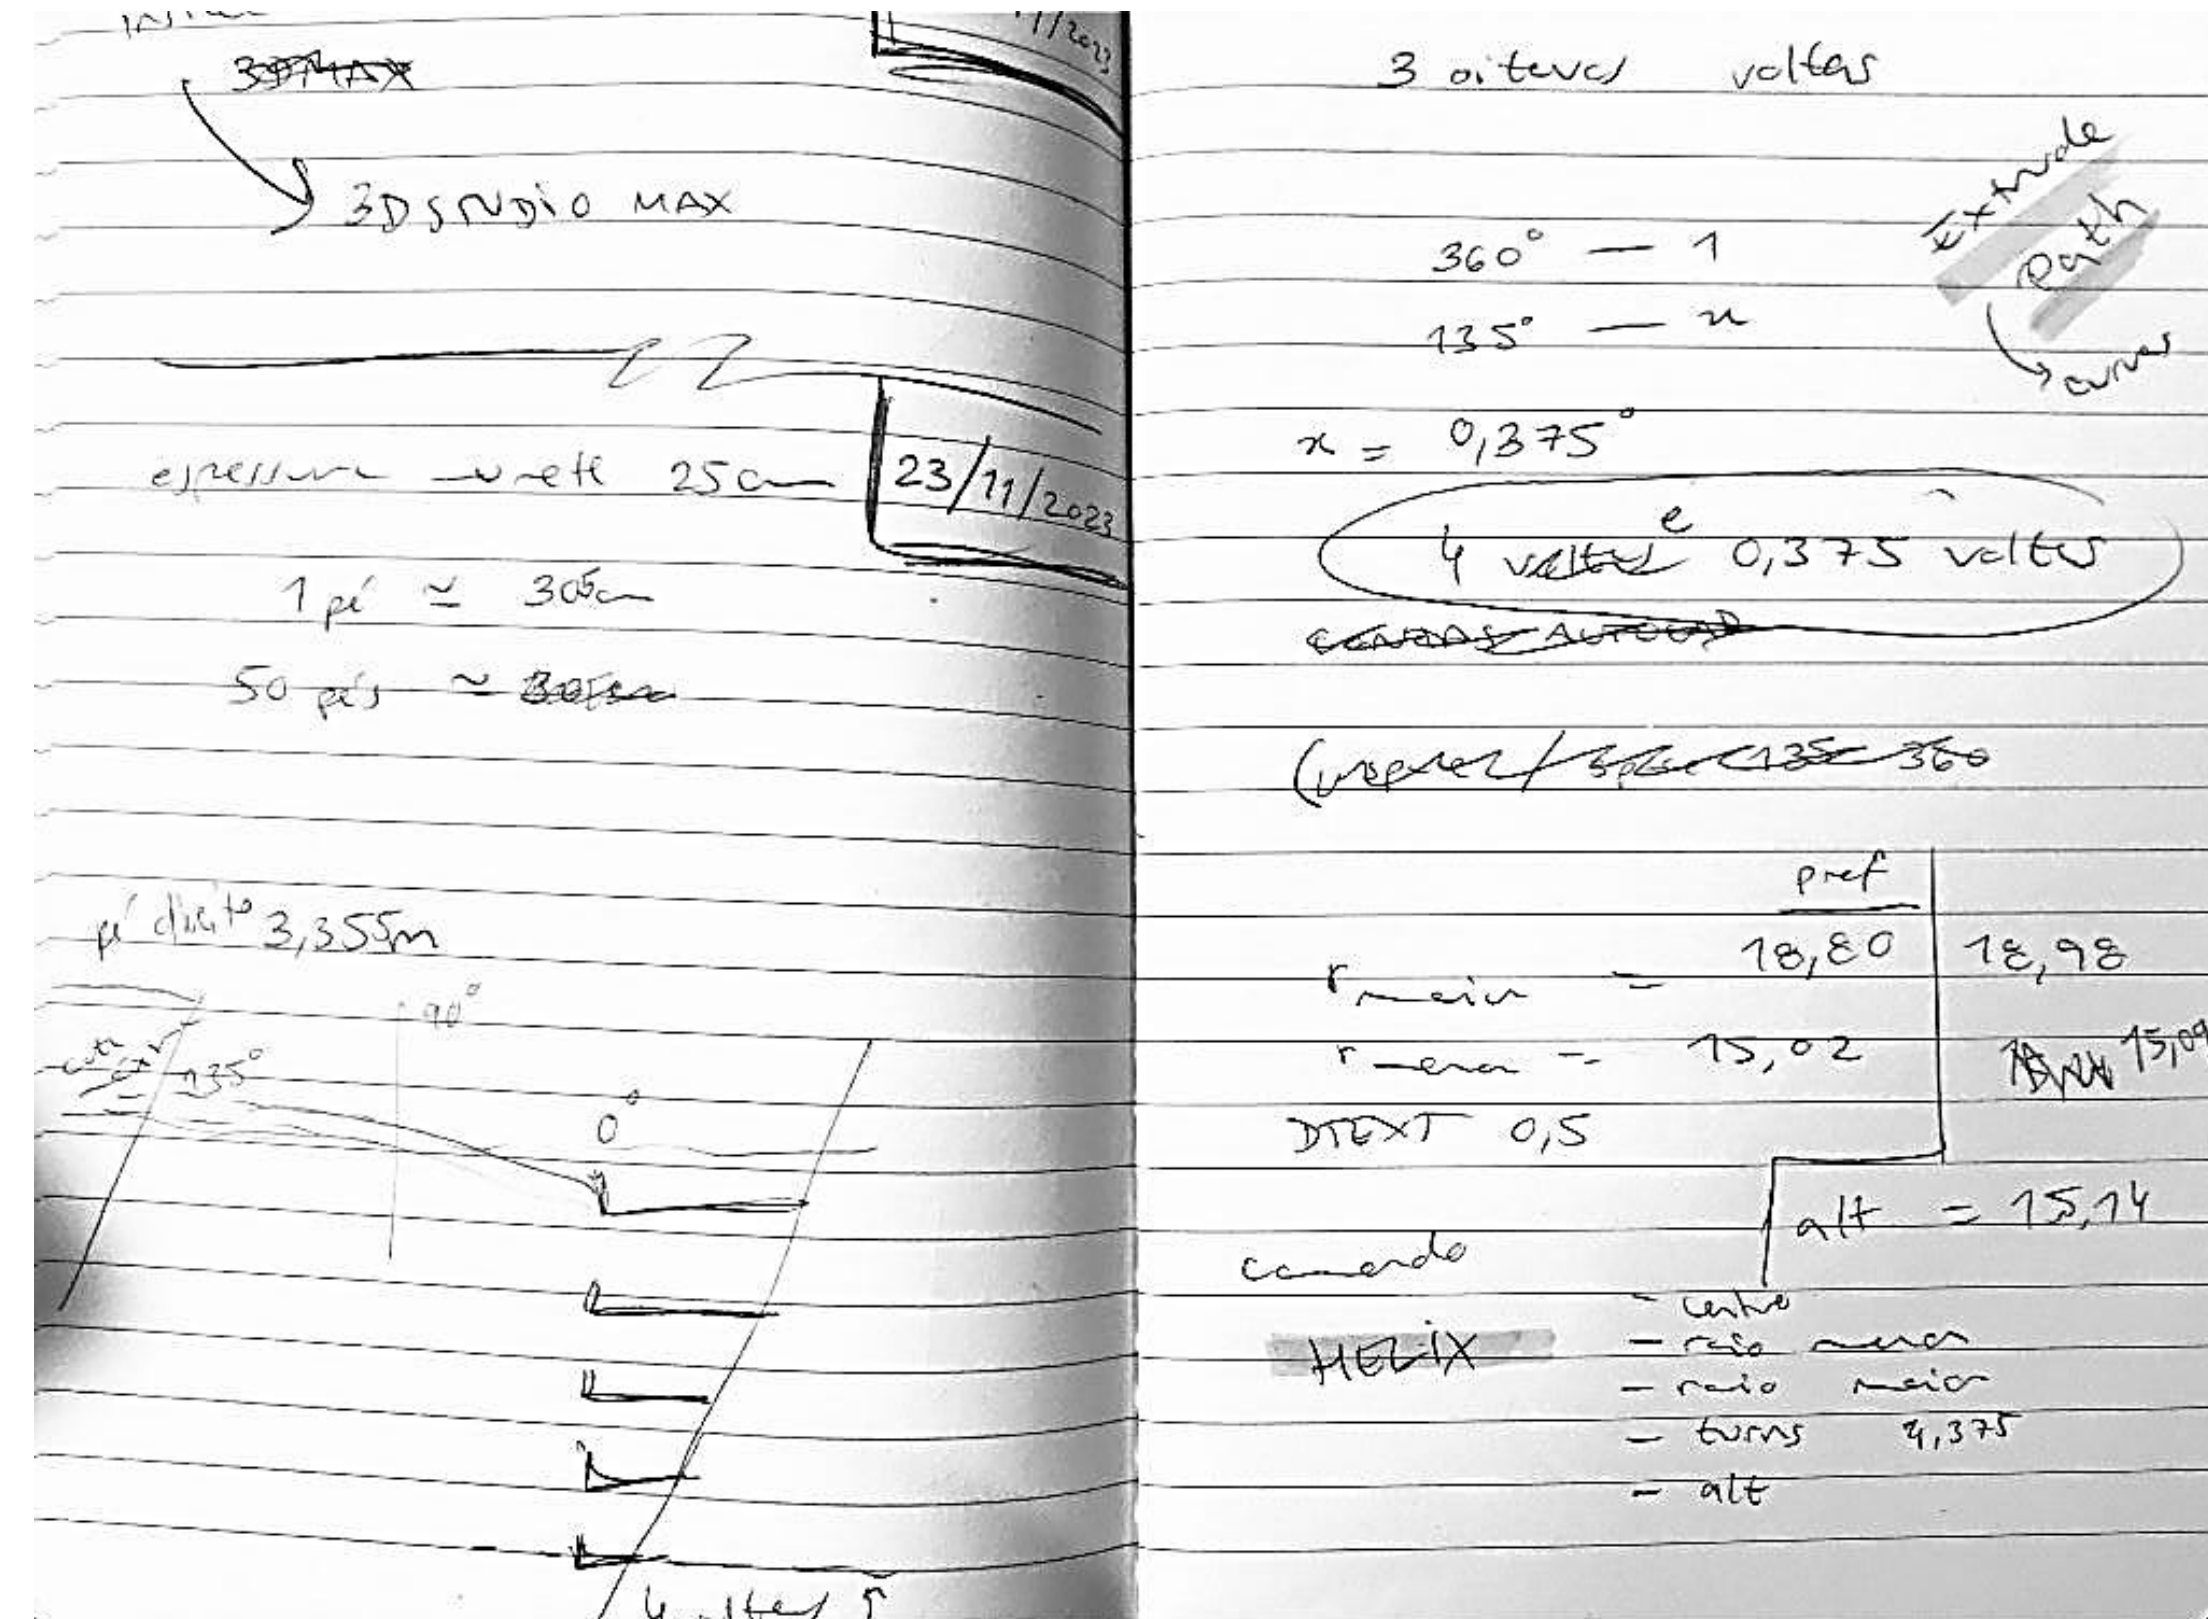 3DMAX
3DSTUDIO MAX
espessura 25cm
23/11/2023
1 pé ≃ 305cm
50 pés ~
pé direito 3,355m
90°
135°
0°
11/2023
3 oitavas voltas
Extrude
Path
curvas
360° — 1
135° — x
x = 0,375°
4 voltas e 0,375 voltas
135 360
pref
r maior = 18,80 18,98
r menor = 15,02 15,09
DTEXT 0,5
alt = 15,14
comando
HELIX
- centro
- raio menor
- raio maior
- turns 4,375
- alt